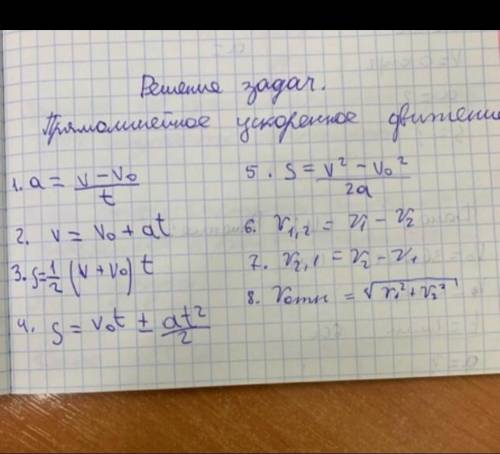 Решение задач.
Прямолинейное ускоренное движение
1. a = (v - v₀)/t
2. v = v₀ + at
3. S = 1/2 (v + v₀) t
4. S = v₀t ± at²/2
5. S = (v² - v₀²)/2a
6. v₁,₂ = v₁ - v₂
7. v₂,₁ = v₂ - v₁
8. vотн = √(v₁² + v₂²)